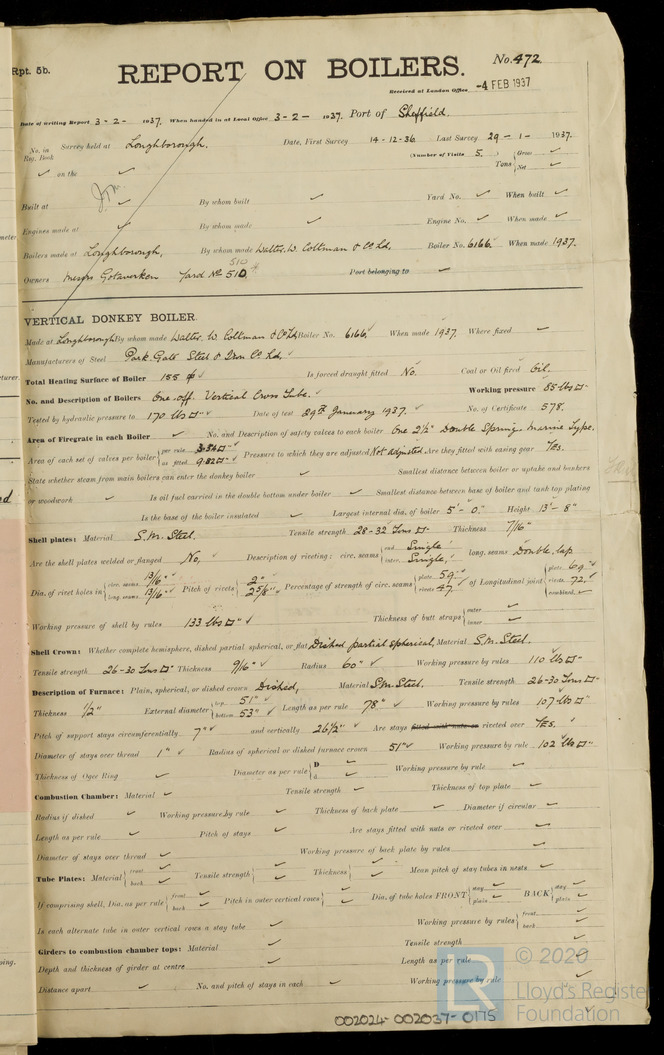 Rpt. 5b.
No. 472.
REPORT ON BOILERS.
Received at London Office -4 FEB 1937
Date of writing Report 3-2- 1937. When handed in at Local Office 3-2- 1937. Port of Sheffield.
No. in Reg. Book Survey held at Loughborough. Date, First Survey 14-12-36. Last Survey 29-1- 1937.
(Number of Visits 5.
✓ on the ✓ Tons { Gross ✓ Net ✓
Built at ✓ By whom built ✓ Yard No. ✓ When built ✓
Engines made at ✓ By whom made ✓ Engine No. ✓ When made ✓
Boilers made at Loughborough, By whom made Walter. W. Coltman & Co Ld, Boiler No. 6166. When made 1937.
510
Owners Messrs Gotaverken Yard No 510. Port belonging to ✓
VERTICAL DONKEY BOILER.
Made at Loughborough By whom made Walter. W. Coltman & Co Ld, Boiler No. 6166. ✓ When made 1937. Where fixed ✓
Manufacturers of Steel Park. Gate Steel & Iron Co Ld, ✓
Total Heating Surface of Boiler 155 ✓ Is forced draught fitted No. Coal or Oil fired Oil.
No. and Description of Boilers One. off. Vertical Cross Tube. Working pressure 85 lbs □"
Tested by hydraulic pressure to 170 lbs □" ✓ Date of test 29th January 1937. No. of Certificate 578.
Area of Firegrate in each Boiler ✓ No. and Description of safety valves to each boiler One 2½" Double Spring, Marine Type.
Area of each set of valves per boiler { per rule 8.84 □" as fitted 9.82 □" ✓ Pressure to which they are adjusted Not adjusted. Are they fitted with easing gear Yes.
State whether steam from main boilers can enter the donkey boiler ✓ Smallest distance between boiler or uptake and bunkers
or woodwork ✓ Is oil fuel carried in the double bottom under boiler ✓ Smallest distance between base of boiler and tank top plating
Is the base of the boiler insulated ✓ Largest internal dia. of boiler 5'-0" Height 13'-8"
Shell plates: Material S.M. Steel. Tensile strength 28-32 Tons □" Thickness 7/16"
Are the shell plates welded or flanged No, Description of riveting: circ. seams { end Single inter. Single, long. seams Double, lap
Dia. of rivet holes in { circ. seams 13/16" long. seams 13/16" ✓ Pitch of rivets { 2" 2 5/8" ✓ Percentage of strength of circ. seams { plate 59. rivets 47. of Longitudinal joint { plate 69. rivets 72. combined ✓
Working pressure of shell by rules 133 lbs □" ✓ Thickness of butt straps { outer ✓ inner ✓
Shell Crown: Whether complete hemisphere, dished partial spherical, or flat Dished partial spherical, Material S.M. Steel.
Tensile strength 26-30 Tons □" Thickness 9/16" ✓ Radius 60" ✓ Working pressure by rules 110 lbs □"
Description of Furnace: Plain, spherical, or dished crown Dished, Material S.M. Steel. Tensile strength 26-30 Tons □"
Thickness ½" External diameter { top 51" bottom 53" ✓ Length as per rule 78" ✓ Working pressure by rules 107 lbs □"
Pitch of support stays circumferentially 7" ✓ and vertically 26½" ✓ Are stays fitted with nuts or riveted over Yes. ✓
Diameter of stays over thread 1" ✓ Radius of spherical or dished furnace crown 51" ✓ Working pressure by rule 102 lbs □"
Thickness of Ogee Ring ✓ Diameter as per rule { D ✓ d ✓ Working pressure by rule ✓
Combustion Chamber: Material ✓ Tensile strength ✓ Thickness of top plate ✓
Radius if dished ✓ Working pressure by rule ✓ Thickness of back plate ✓ Diameter if circular ✓
Length as per rule ✓ Pitch of stays ✓ Are stays fitted with nuts or riveted over ✓
Diameter of stays over thread ✓ Working pressure of back plate by rules ✓
Tube Plates: Material { front ✓ back ✓ Tensile strength { ✓ Thickness { ✓ Mean pitch of stay tubes in nests ✓
If comprising shell, Dia. as per rule { front ✓ back ✓ Pitch in outer vertical rows { ✓ Dia. of tube holes FRONT { stay ✓ plain ✓ BACK { stay ✓ plain ✓
Is each alternate tube in outer vertical rows a stay tube ✓ Working pressure by rules { front ✓ back ✓
Girders to combustion chamber tops: Material ✓ Tensile strength ✓
Depth and thickness of girder at centre ✓ Length as per rule ✓
Distance apart ✓ No. and pitch of stays in each ✓ Working pressure by rule ✓
© 2020
Lloyd's Register
Foundation
LR
002024-002037-0175